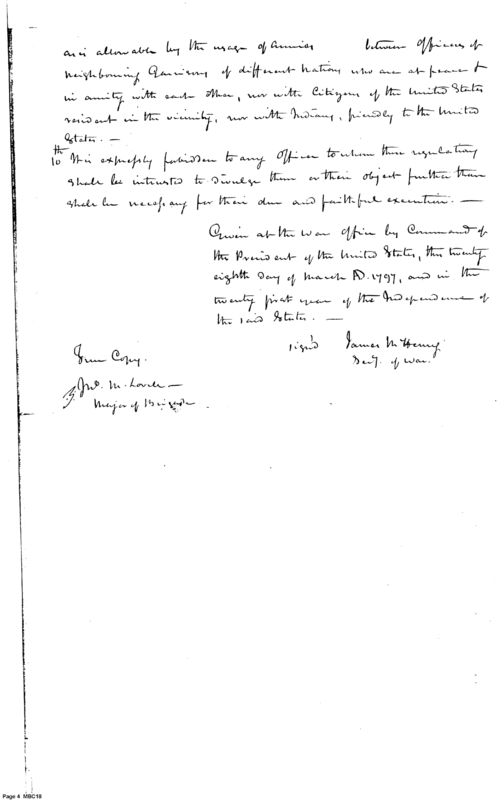 as is allowable by the usage of Armies between Officers of
neighbouring Garrisons of different Nations who are at peace &
in amity with each other, nor with Citizens of the United States
resident in the vicinity, nor with Indians, friendly to the United
States. —
10th It is expressly forbidden to any Officer to whom these regulations
shall be intrusted to divulge them or their object further than
shall be necessary for their due and faithful execution. —
Given at the War Office by Command of
the President of the United States, this twenty
eighth day of March AD. 1797, and in the
twenty first year of the Independence of
the said States. —
sign'd James McHenry
Secy. of War.
True Copy.
Jno. M. Lovell —
Major of Brigade
Page 4 MBC18